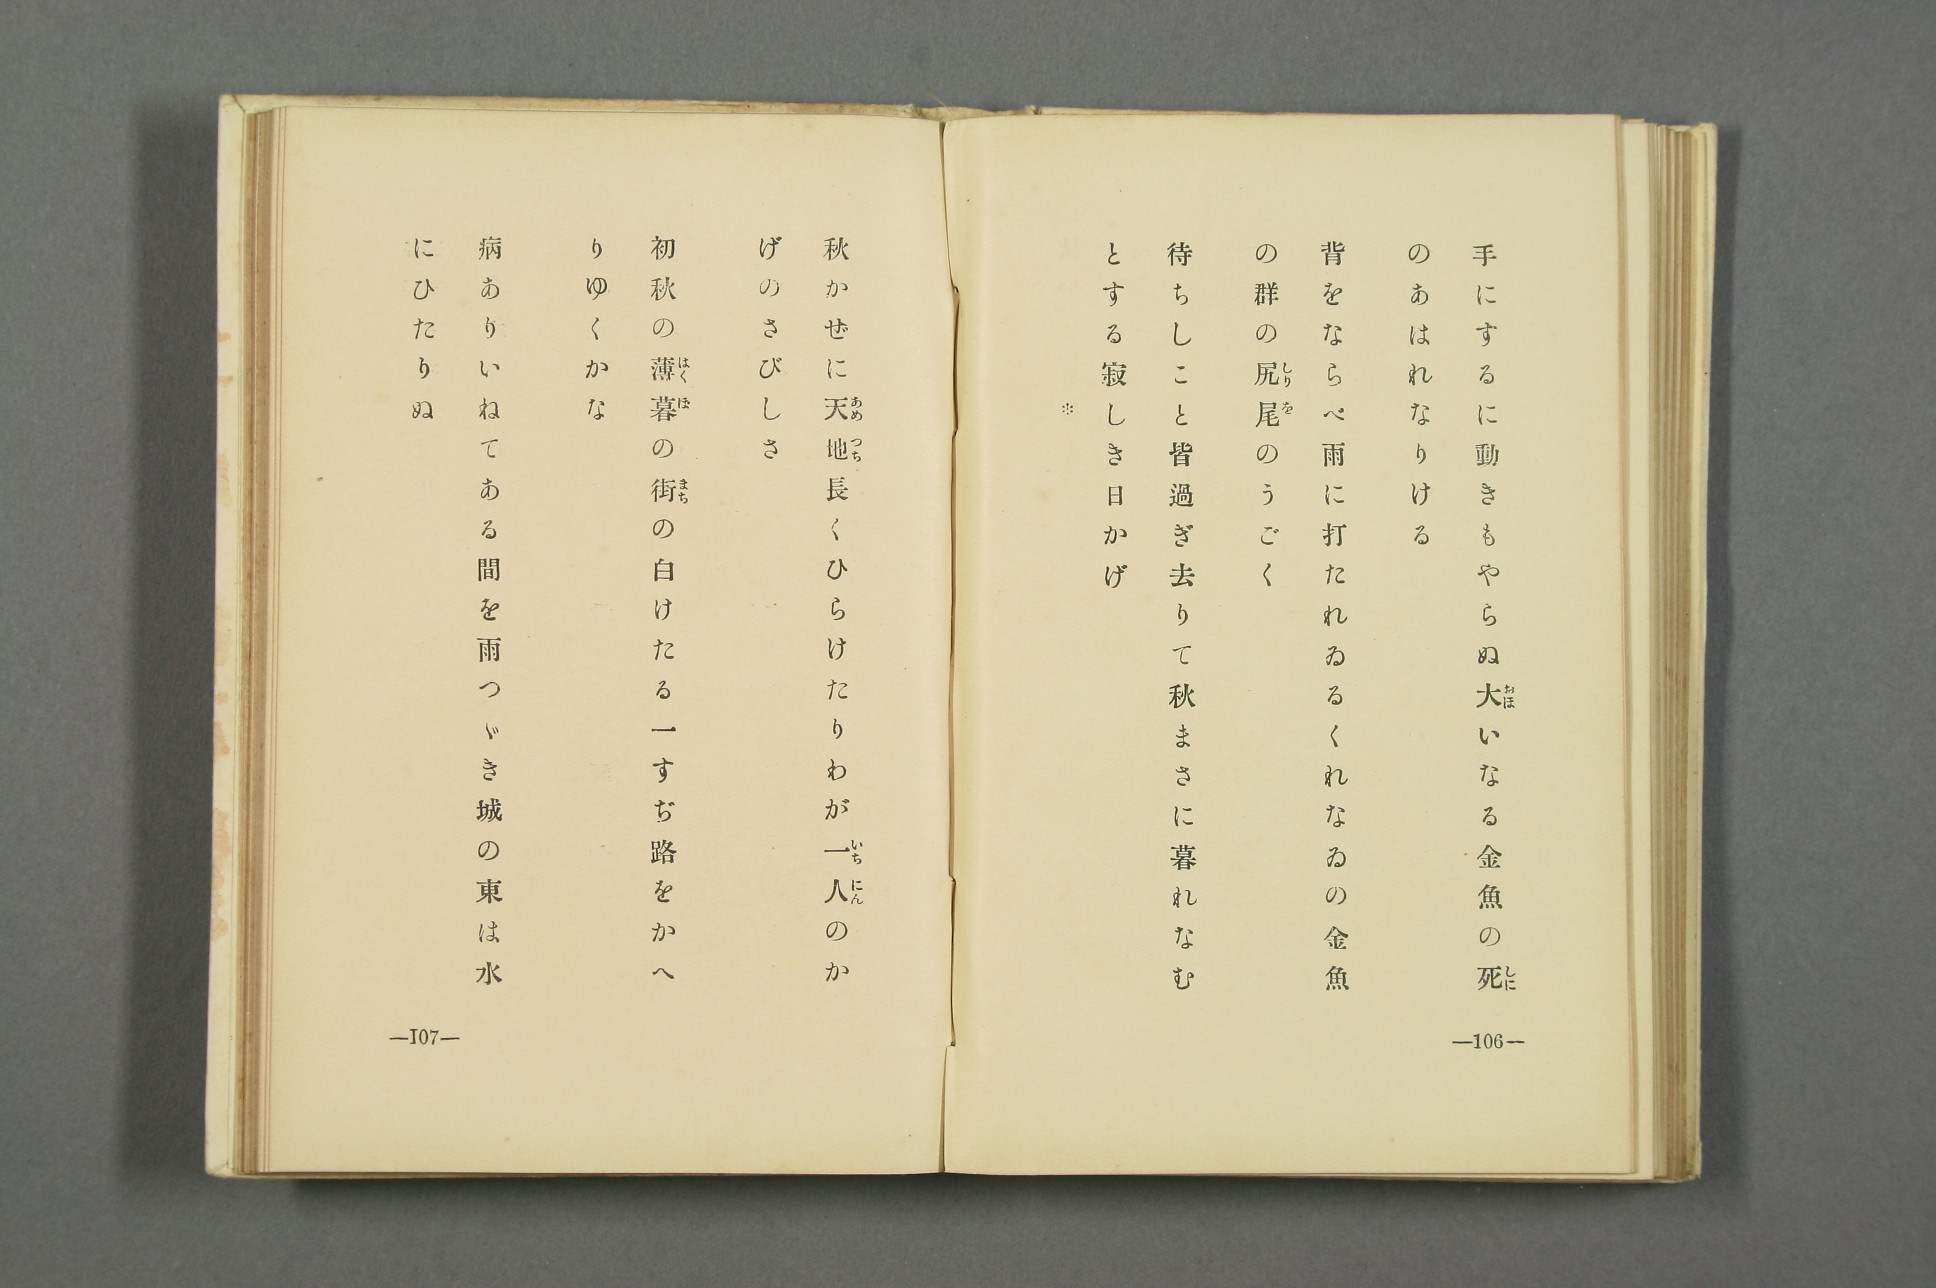 手にするに動きもやらぬ大いなる金魚の死
のあはれなりける
背をならべ雨に打たれゐるくれなゐの金魚
の群の尻尾のうごく
待ちしこと皆過ぎ去りて秋まさに暮れなむ
とする寂しき日かげ
＊
—106—
秋かぜに天地長くひらけたりわが一人のか
げのさびしさ
初秋の薄暮の街の白けたる一すぢ路をかへ
りゆくかな
病ありいねてある間を雨つゞき城の東は水
にひたりぬ
—107—